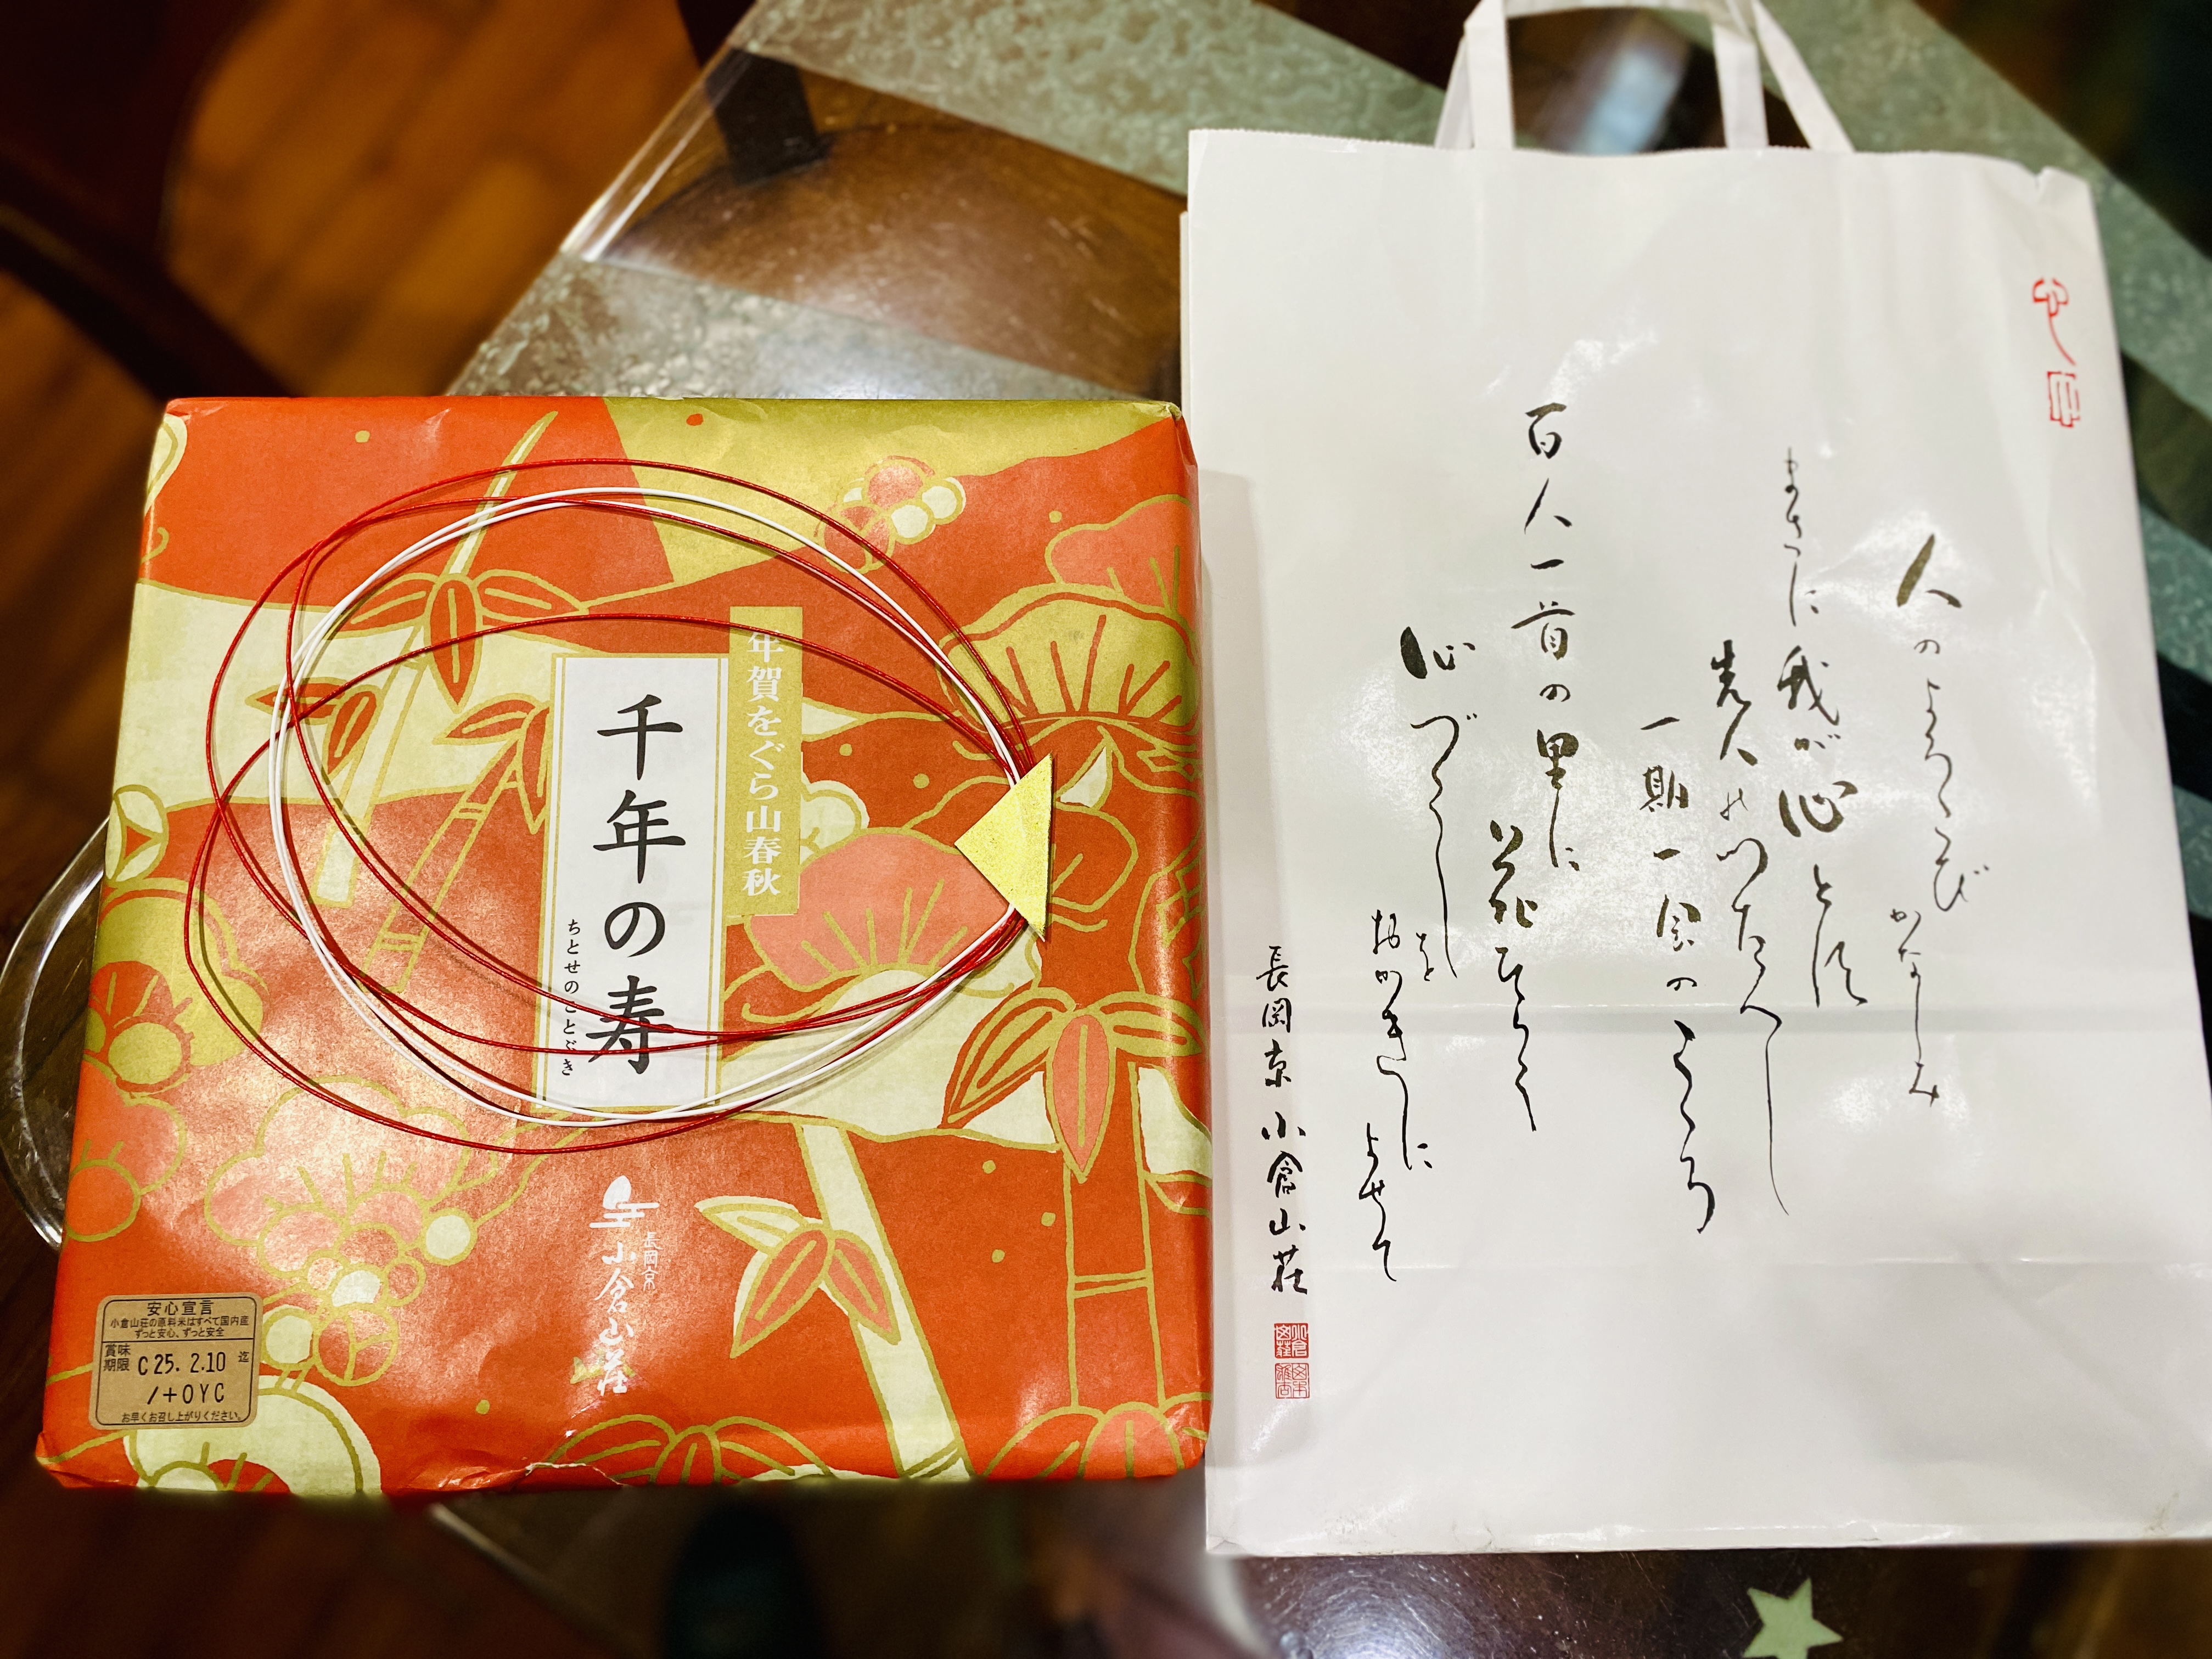 年賀をぐら山春秋
千年の寿
ちとせのことぶき
長岡京
小倉山荘
安心宣言
小倉山荘の原料米はすべて国内産
ずっと安心、ずっと安全
賞味期限 C25. 2.10 迄
/+OYC
お早くお召し上がりください。
人のよろこび かなしみ
まさに我が心とし
先人のつたへし
一期一会のこころ
百人一首の里に
花ひらく
心づくしを
おかきに よせて
長岡京 小倉山荘